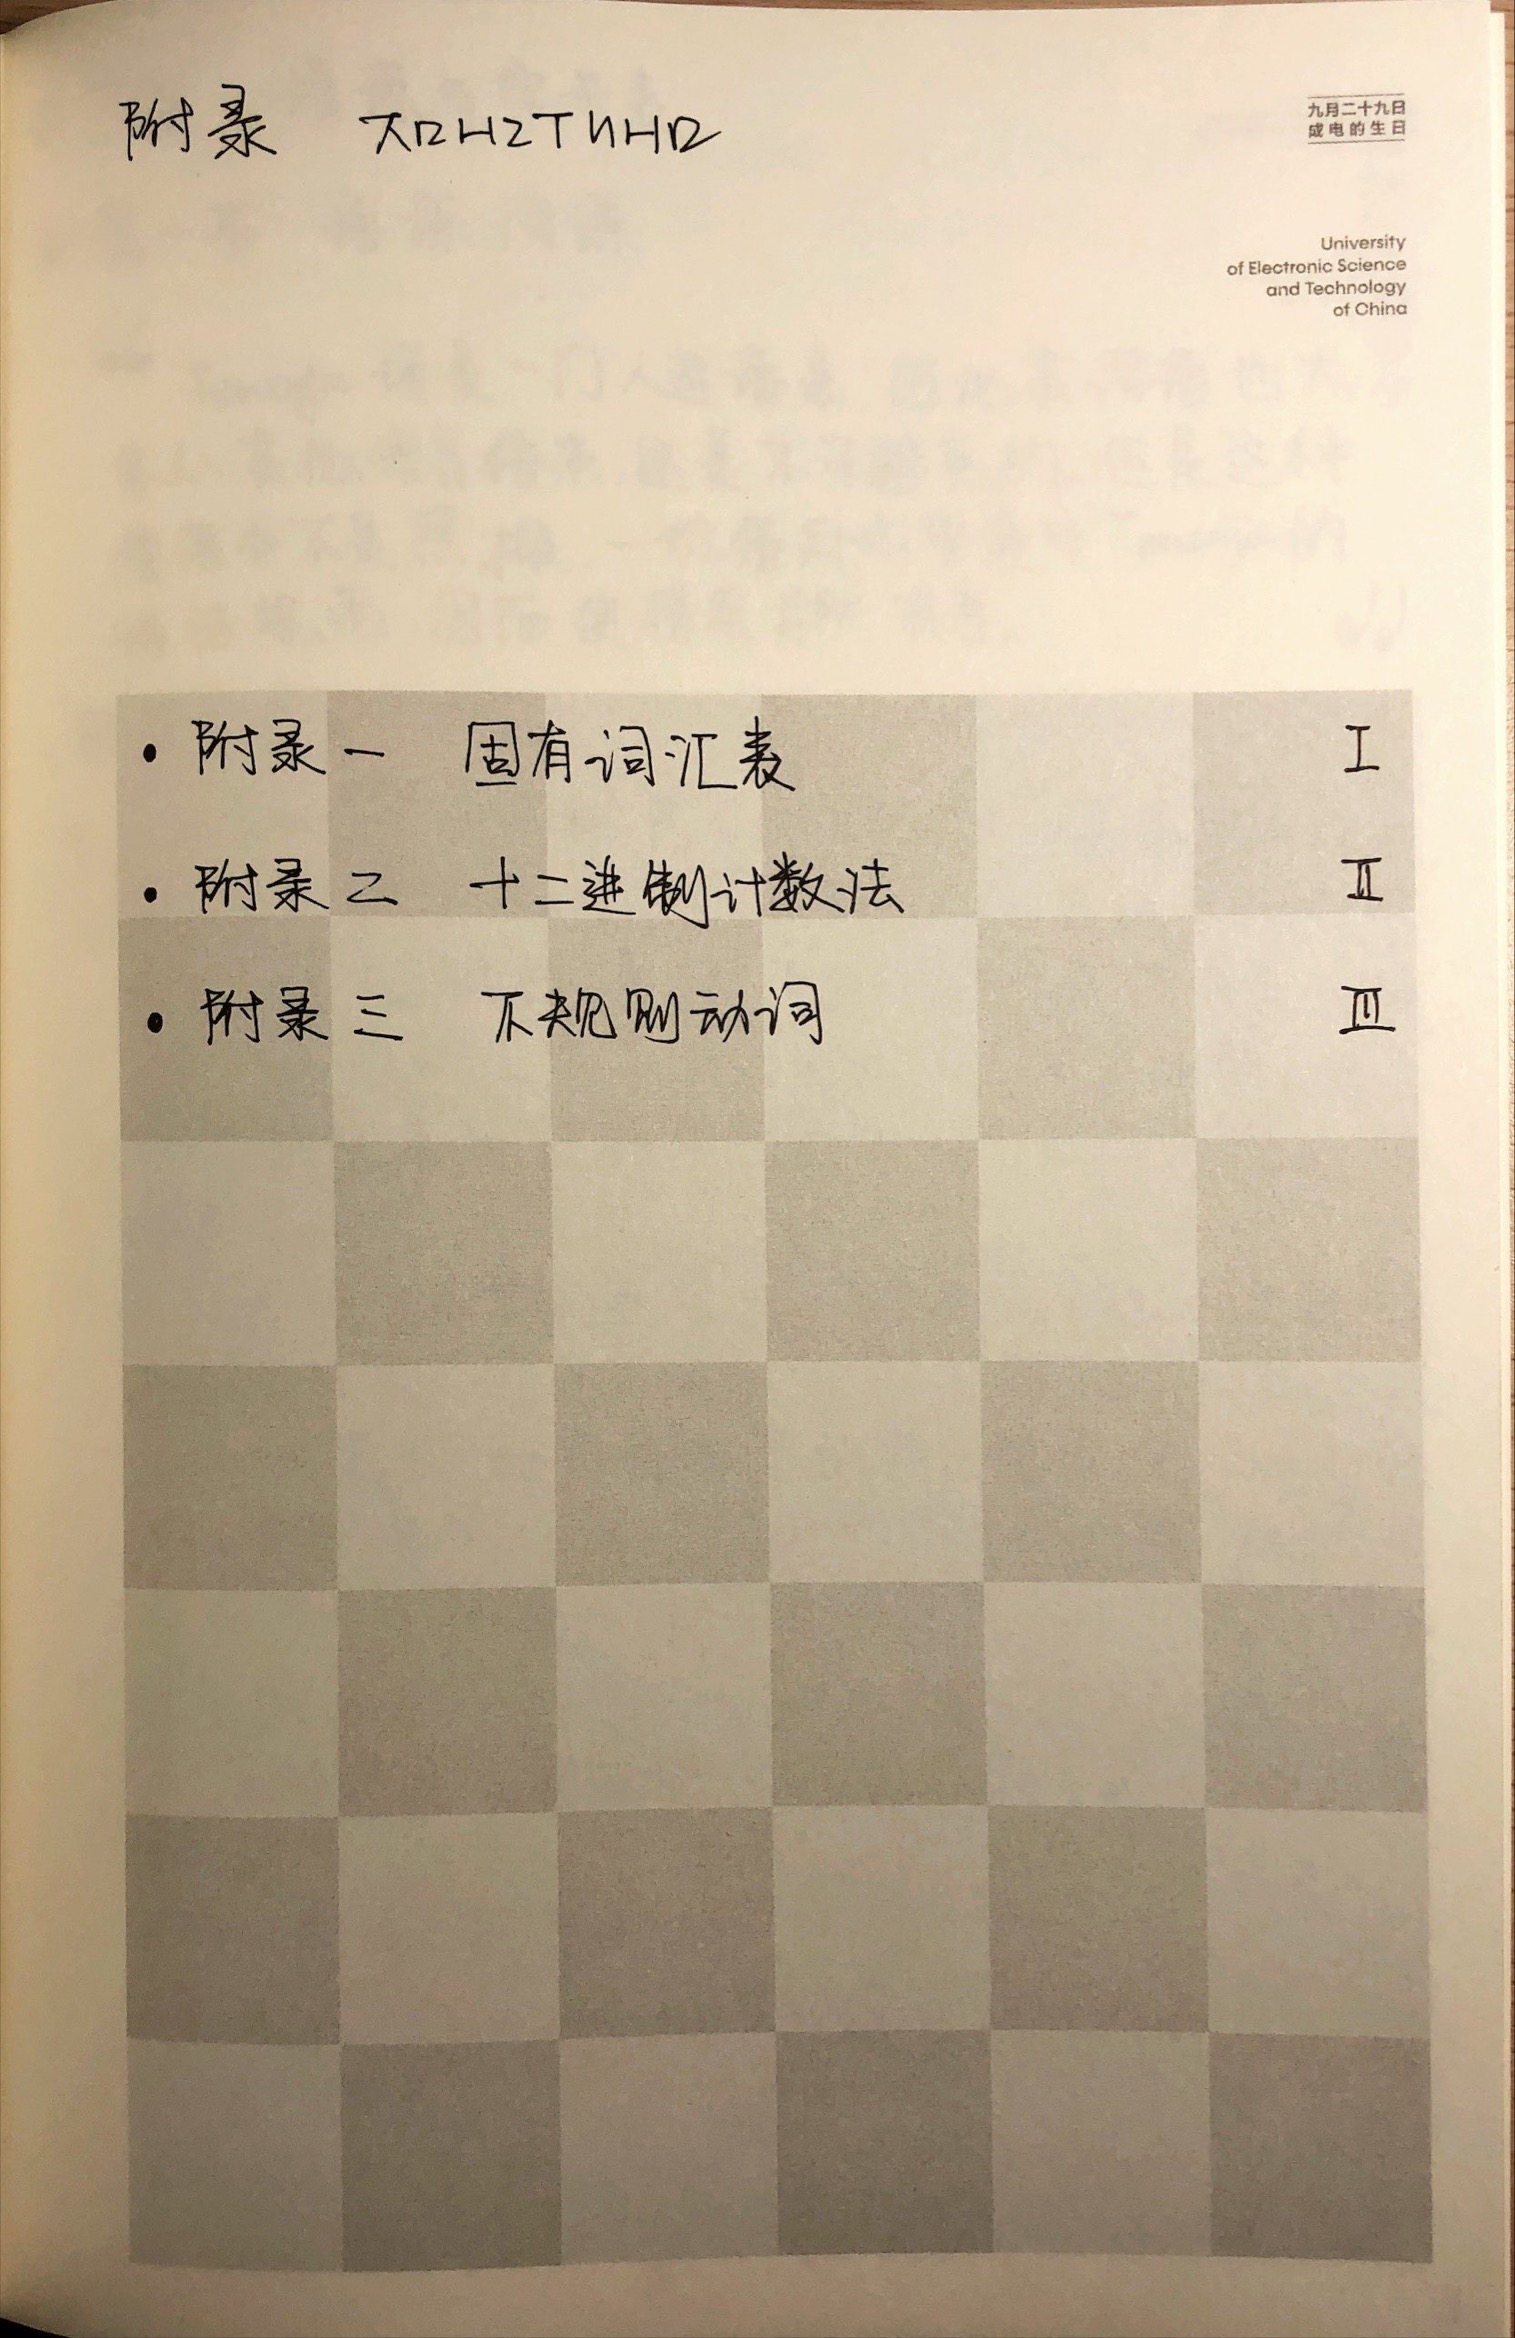 附录
九月二十九日
成电的生日
University
of Electronic Science
and Technology
of China
• 附录一 固有词汇表 I
• 附录二 十二进制计数法 II
• 附录三 不规则动词 III